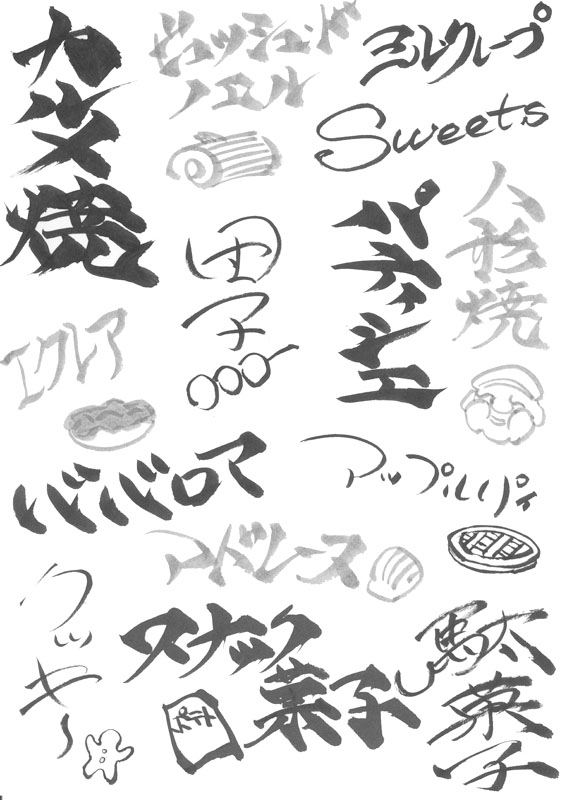 カルメ焼
ビュッシュ・ド・
ノエル
ミルクレープ
Sweets
人形焼
パティシエ
団子
エクレア
ババロア
アップルパイ
マドレーヌ
クッキー
スナック
菓子
駄菓子